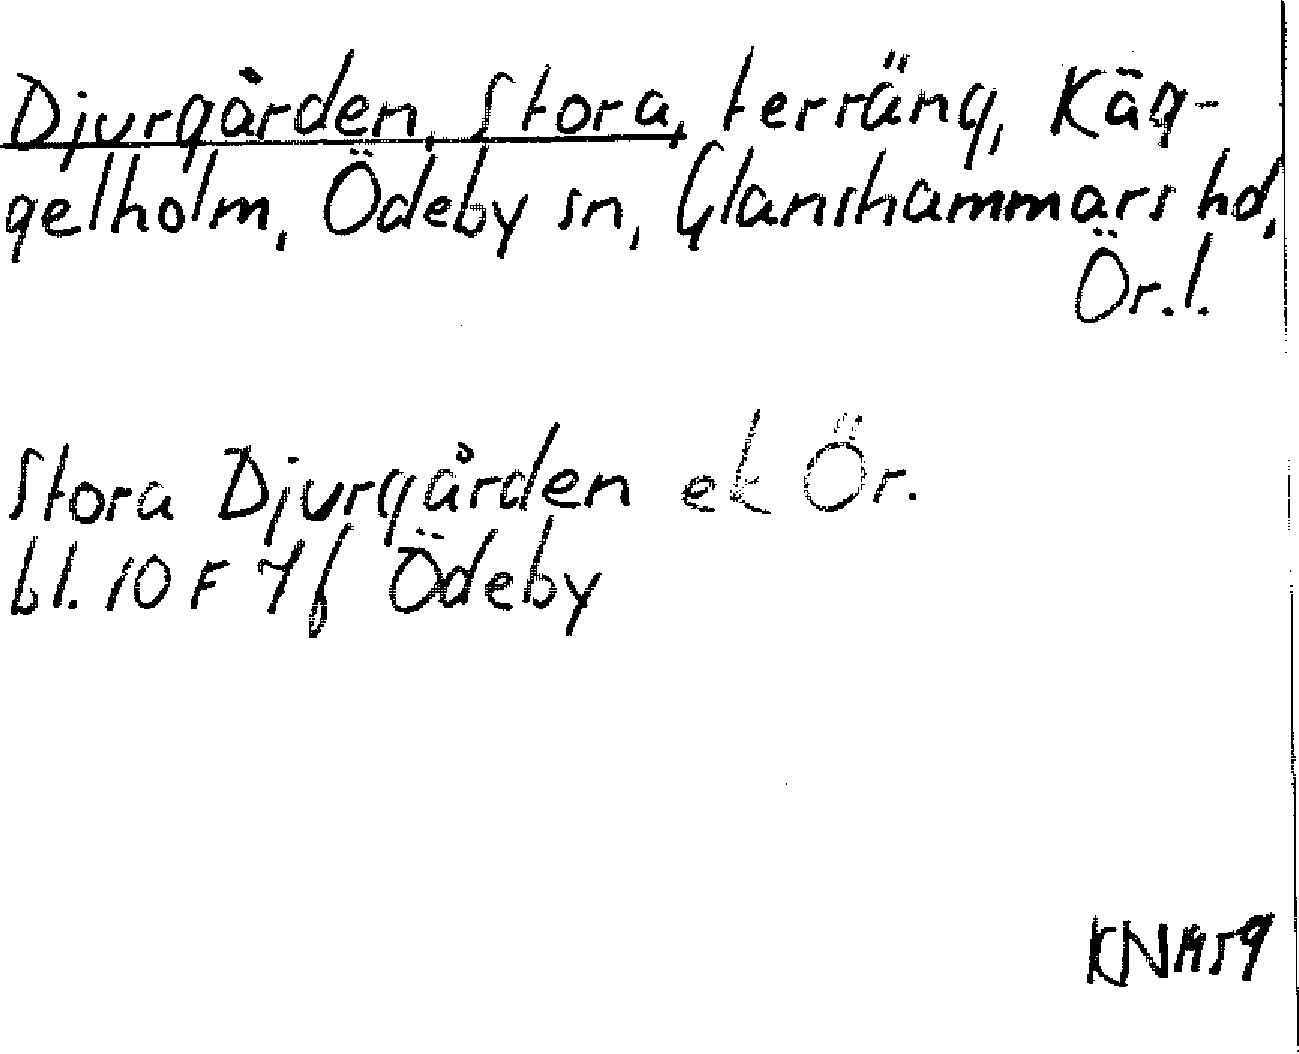 Djurgården, Stora, terräng, Käg-
gelholm, Ödeby sn, Glanshammars hd,
Ör.l.
Stora Djurgården ek Ör.
bl. 10 F 7f Ödeby
KN 1959